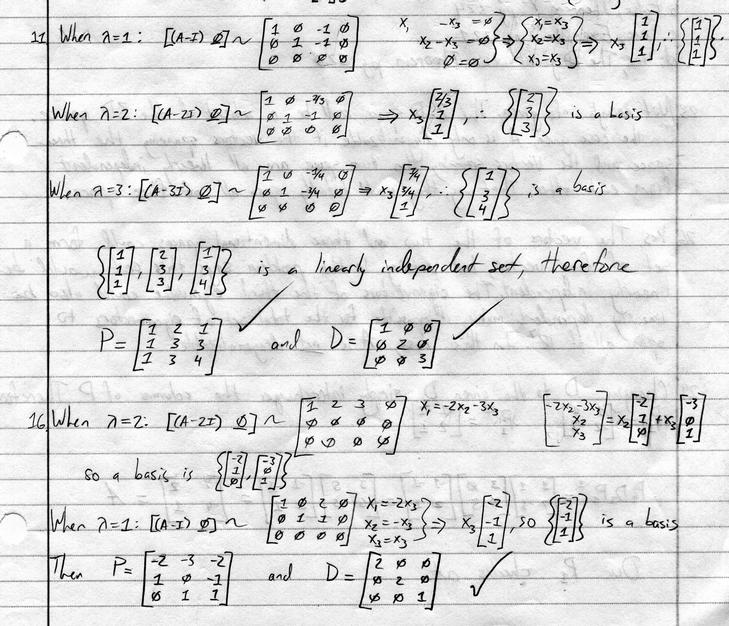 11. When λ=1: [(A-I) 0] ~ [1 0 -1 0; 0 1 -1 0; 0 0 0 0] x₁ -x₃ = 0, x₂-x₃ = 0, 0=0} ⇒ {x₁=x₃, x₂=x₃, x₃=x₃} ⇒ x₃[1; 1; 1], ∴ {[1; 1; 1]}.
When λ=2: [(A-2I) 0] ~ [1 0 -2/3 0; 0 1 -1 0; 0 0 0 0] ⇒ x₃[2/3; 1; 1], ∴ {[2; 3; 3]} is a basis
When λ=3: [(A-3I) 0] ~ [1 0 -1/4 0; 0 1 -3/4 0; 0 0 0 0] ⇒ x₃[1/4; 3/4; 1], ∴ {[1; 3; 4]} is a basis
{[1; 1; 1], [2; 3; 3], [1; 3; 4]} is a linearly independent set, therefore
P= [1 2 1; 1 3 3; 1 3 4] ✓ and D= [1 0 0; 0 2 0; 0 0 3] ✓
16. When λ=2: [(A-2I) 0] ~ [1 2 3 0; 0 0 0 0; 0 0 0 0] x₁=-2x₂-3x₃ [-2x₂-3x₃; x₂; x₃] = x₂[-2; 1; 0] + x₃[-3; 0; 1]
so a basis is {[-2; 1; 0], [-3; 0; 1]}
When λ=1: [(A-I) 0] ~ [1 0 2 0; 0 1 1 0; 0 0 0 0] x₁=-2x₃, x₂=-x₃, x₃=x₃} ⇒ x₃[-2; -1; 1], so {[-2; -1; 1]} is a basis
Then P= [-2 -3 -2; 1 0 -1; 0 1 1] and D= [2 0 0; 0 2 0; 0 0 1] ✓